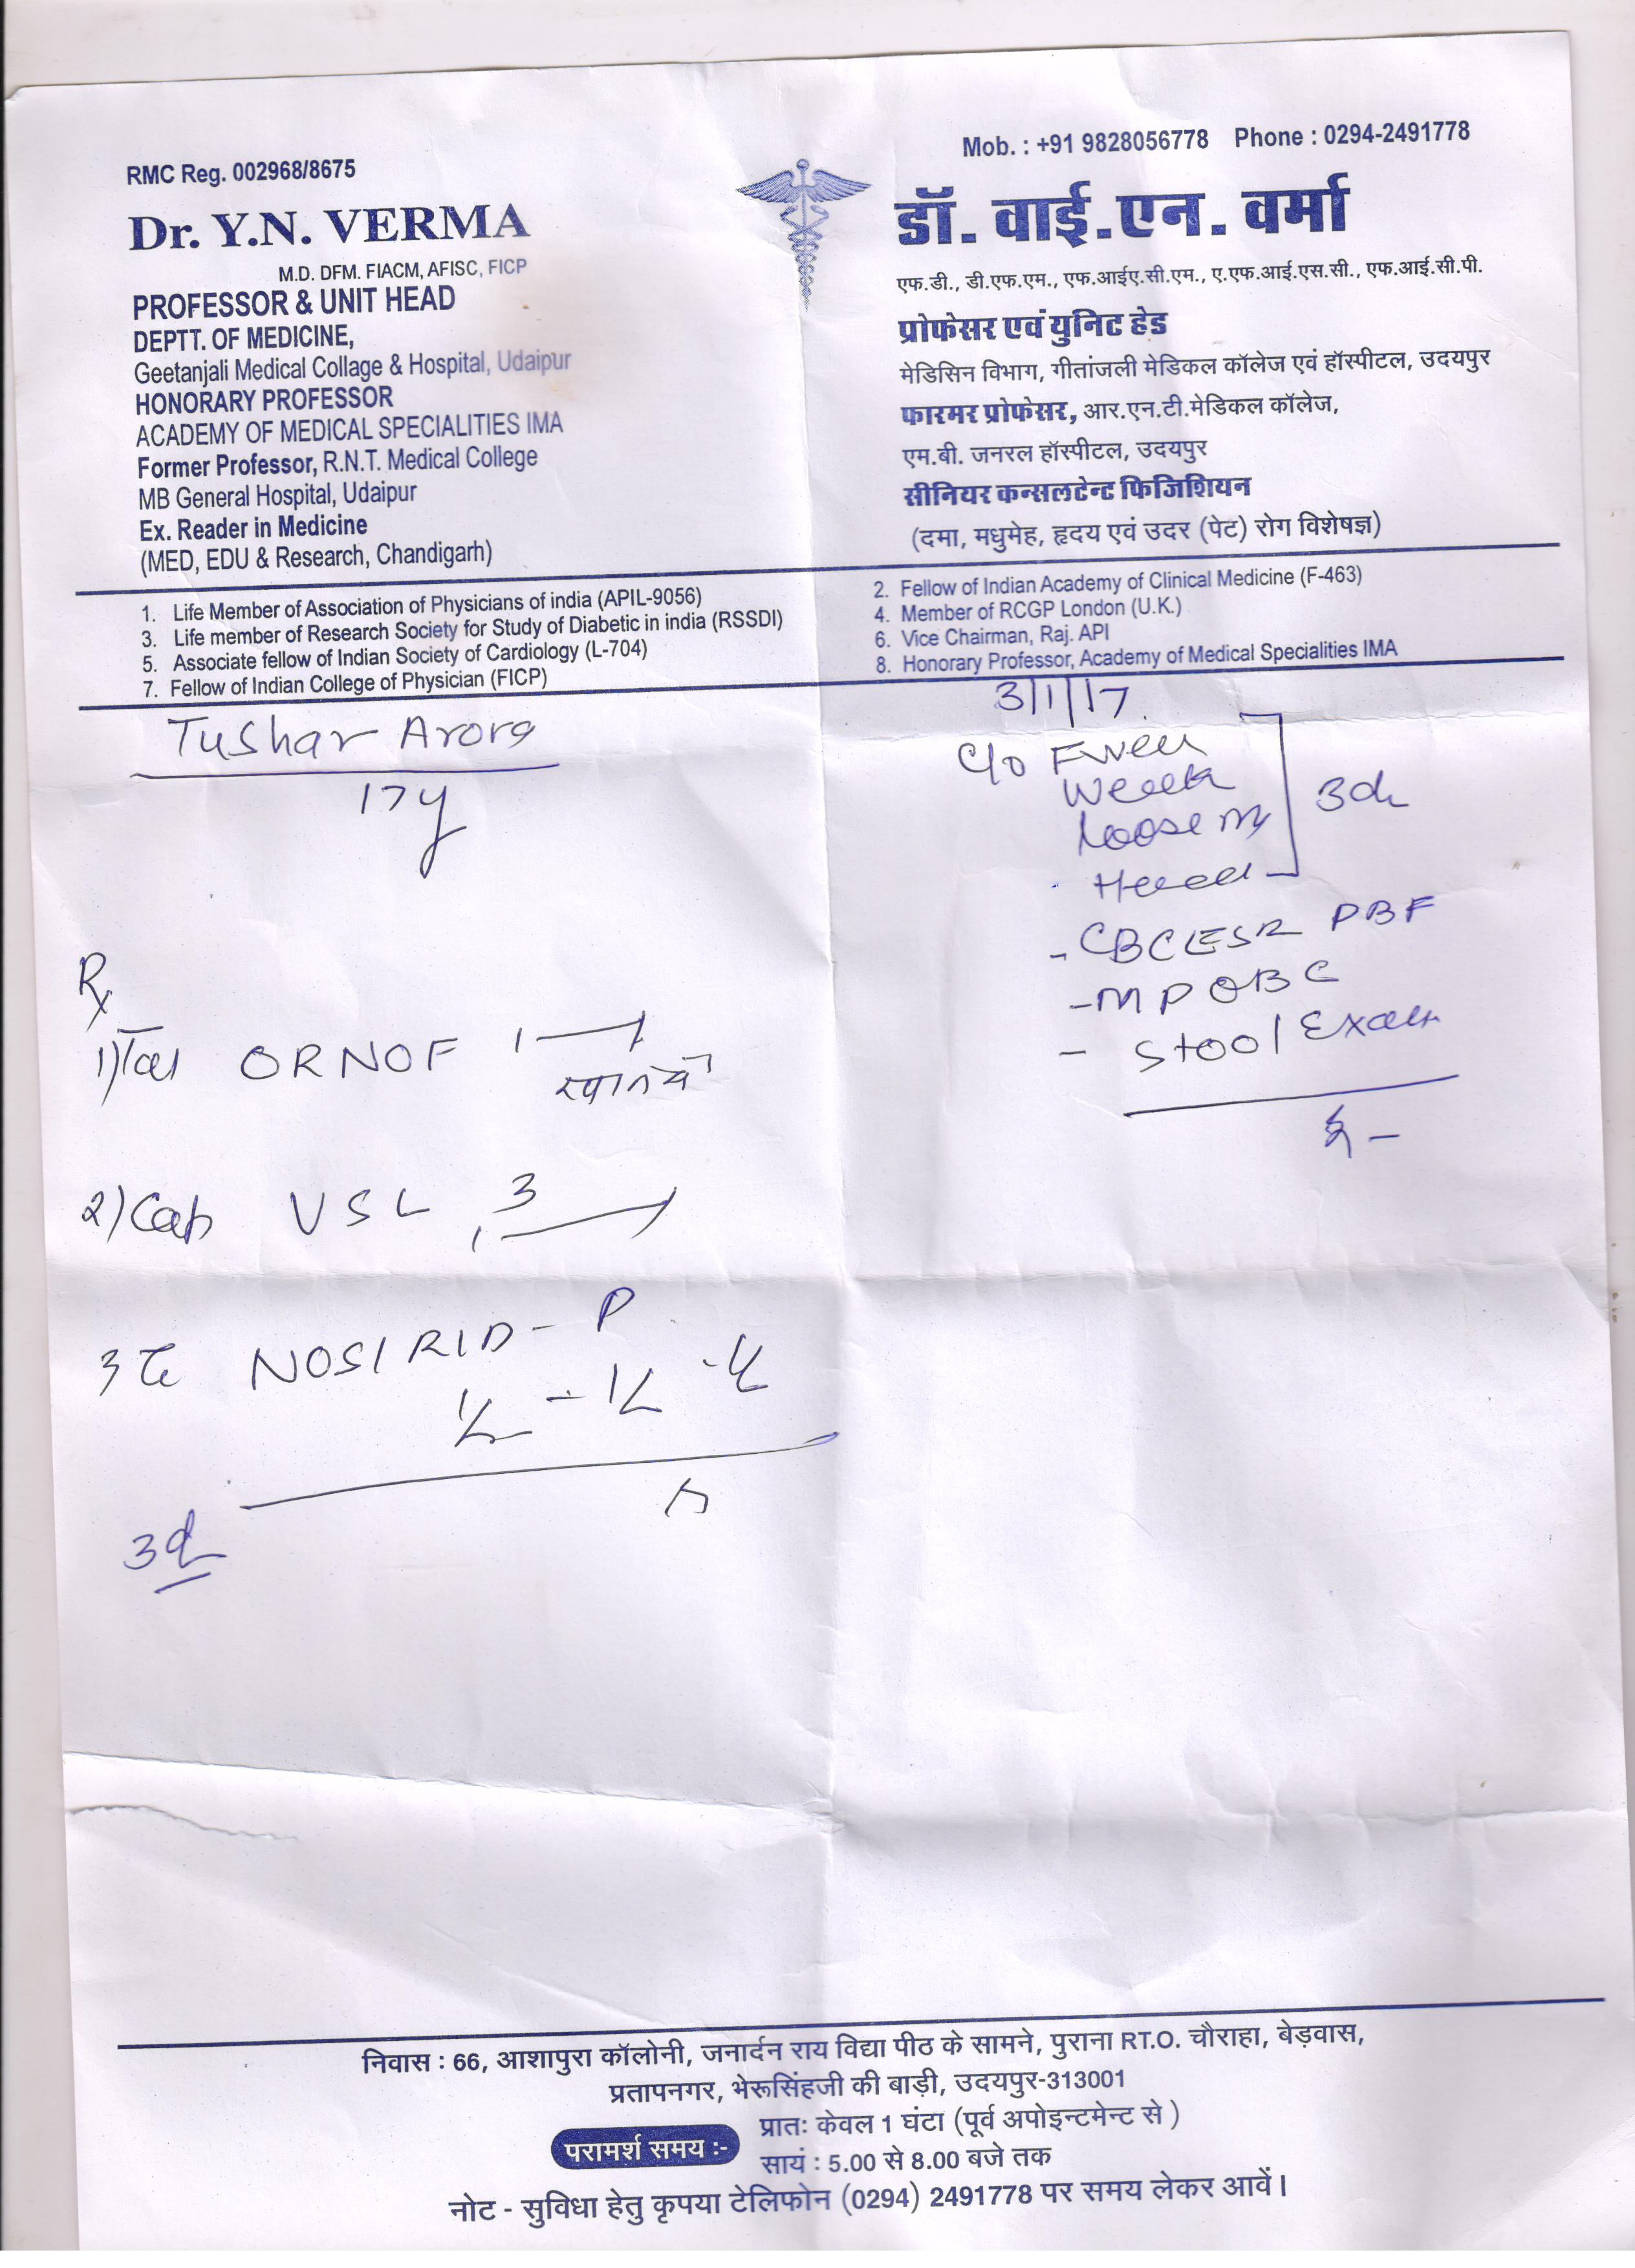 RMC Reg. 002968/8675
Dr. Y.N. VERMA
M.D. DFM. FIACM, AFISC, FICP
PROFESSOR & UNIT HEAD
DEPTT. OF MEDICINE,
Geetanjali Medical Collage & Hospital, Udaipur
HONORARY PROFESSOR
ACADEMY OF MEDICAL SPECIALITIES IMA
Former Professor, R.N.T. Medical College
MB General Hospital, Udaipur
Ex. Reader in Medicine
(MED, EDU & Research, Chandigarh)
Mob. : +91 9828056778 Phone : 0294-2491778
डॉ. वाई.एन. वर्मा
एफ.डी., डी.एफ.एम., एफ.आईए.सी.एम., ए.एफ.आई.एस.सी., एफ.आई.सी.पी.
प्रोफेसर एवं युनिट हेड
मेडिसिन विभाग, गीतांजली मेडिकल कॉलेज एवं हॉस्पीटल, उदयपुर
फारमर प्रोफेसर, आर.एन.टी.मेडिकल कॉलेज,
एम.बी. जनरल हॉस्पीटल, उदयपुर
सीनियर कन्सलटेन्ट फिजिशियन
(दमा, मधुमेह, हृदय एवं उदर (पेट) रोग विशेषज्ञ)
1. Life Member of Association of Physicians of india (APIL-9056)
2. Fellow of Indian Academy of Clinical Medicine (F-463)
3. Life member of Research Society for Study of Diabetic in india (RSSDI)
4. Member of RCGP London (U.K.)
5. Associate fellow of Indian Society of Cardiology (L-704)
6. Vice Chairman, Raj. API
7. Fellow of Indian College of Physician (FICP)
8. Honorary Professor, Academy of Medical Specialities IMA
Tushar Arora
17y
3/1/17
C/o Fever
Loose m
3d
- CBC ESR PBF
- MP QBC
- Stool Exam
Rx
1) Tab ORNOF 1
2) Cap VSL 3
3 NOSIRID-P
1/2 - 1/2 - 1/2
3d
निवास : 66, आशापुरा कॉलोनी, जनार्दन राय विद्या पीठ के सामने, पुराना RT.O. चौराहा, बेड़वास,
प्रतापनगर, भेरूसिंहजी की बाड़ी, उदयपुर-313001
परामर्श समय :-
प्रातः केवल 1 घंटा (पूर्व अपोइन्टमेन्ट से )
सायं : 5.00 से 8.00 बजे तक
नोट - सुविधा हेतु कृपया टेलिफोन (0294) 2491778 पर समय लेकर आवें।